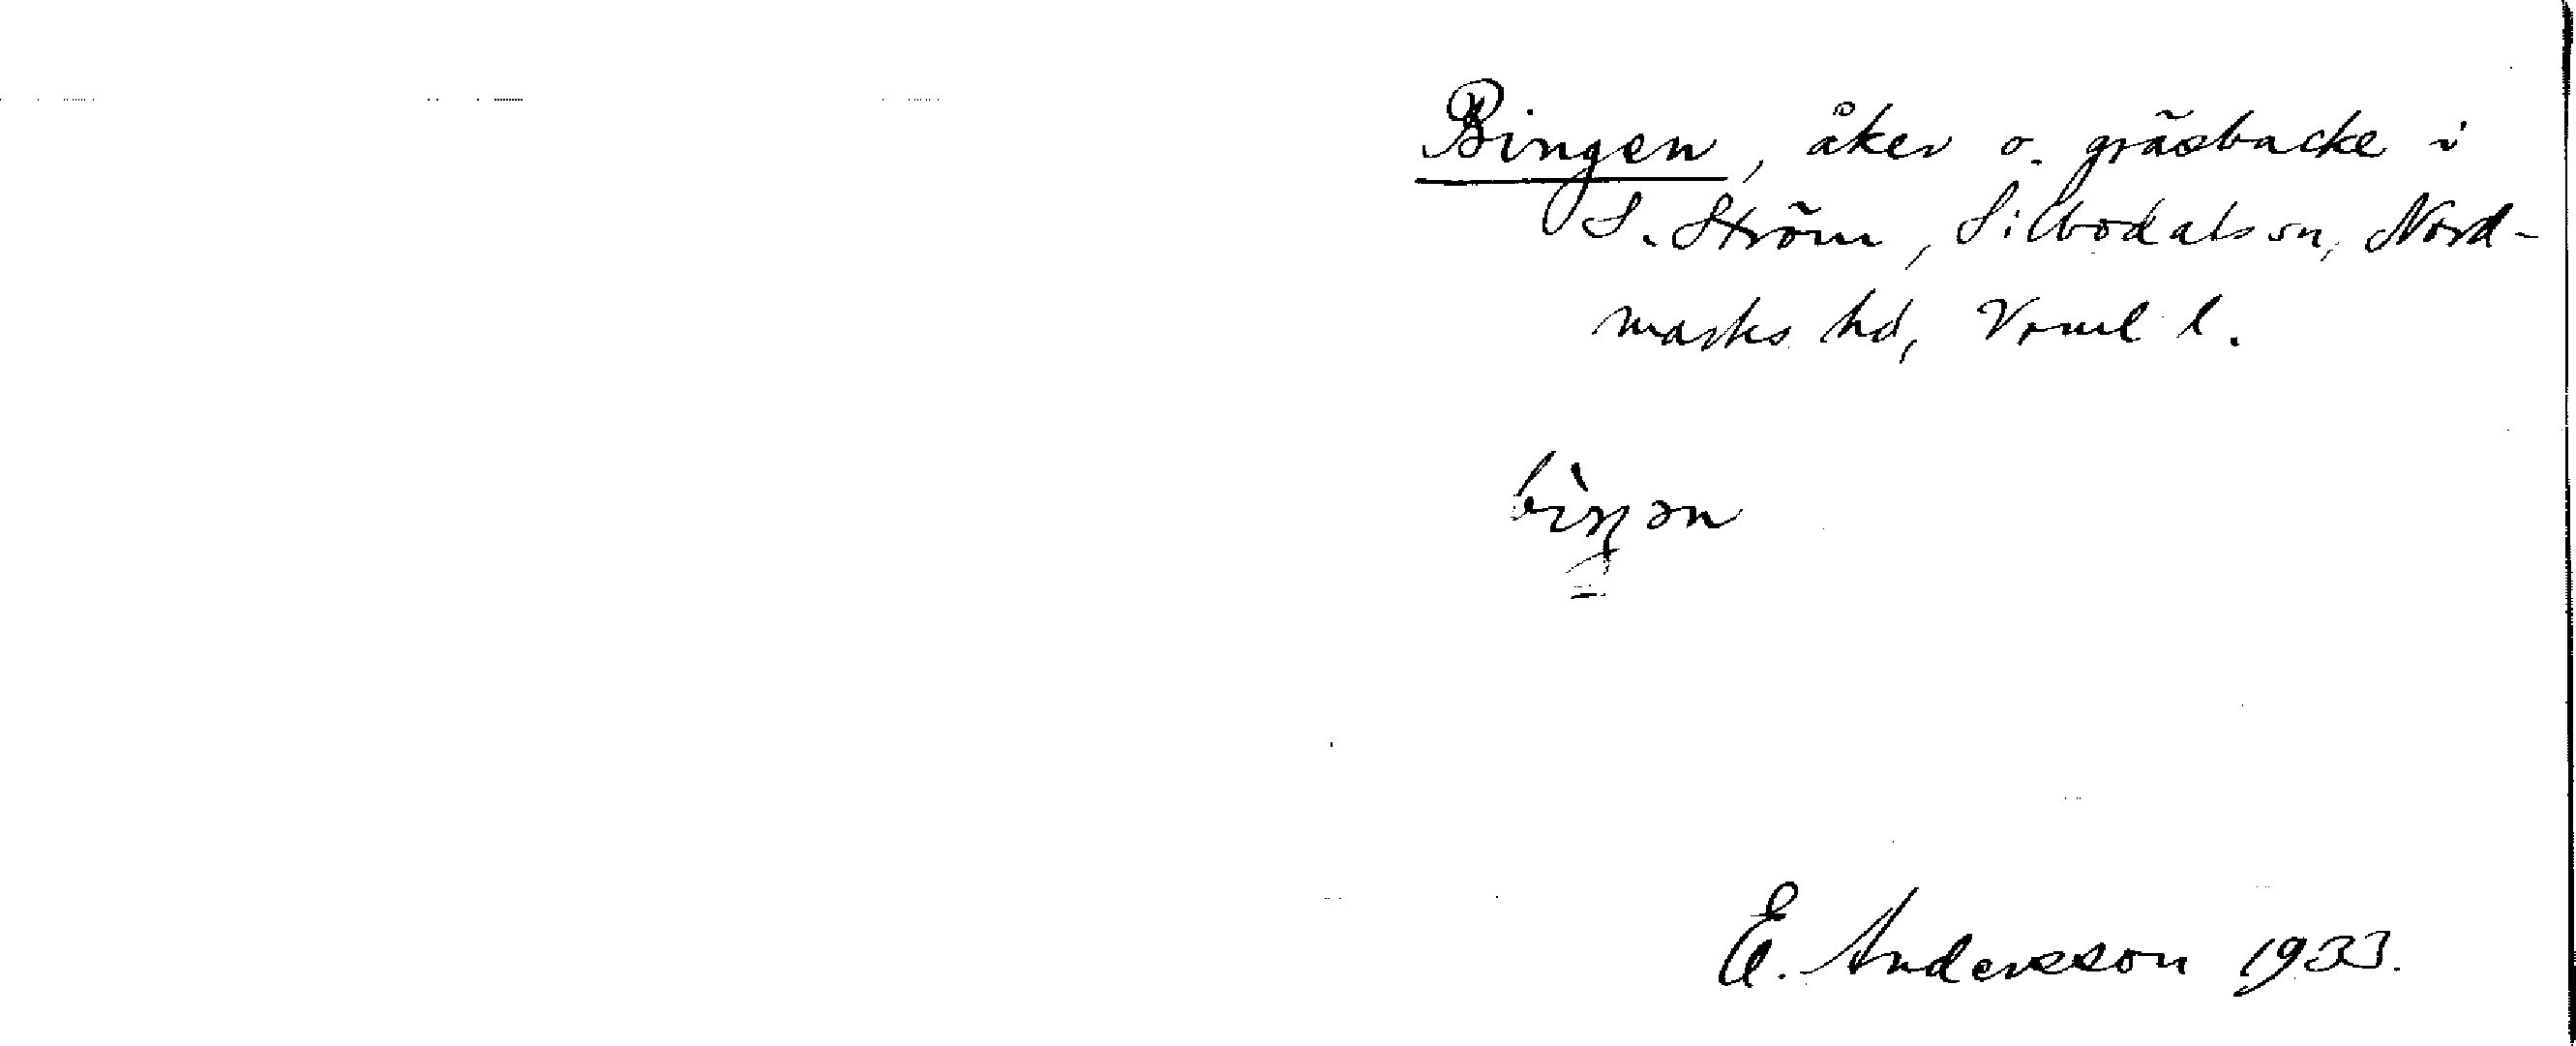 Bingen, åker o. gräsbacke i
S. Ström, Silbodals sn, Nord-
marks hd, Vrml l.
bìŋən
E. Andersson 1933.